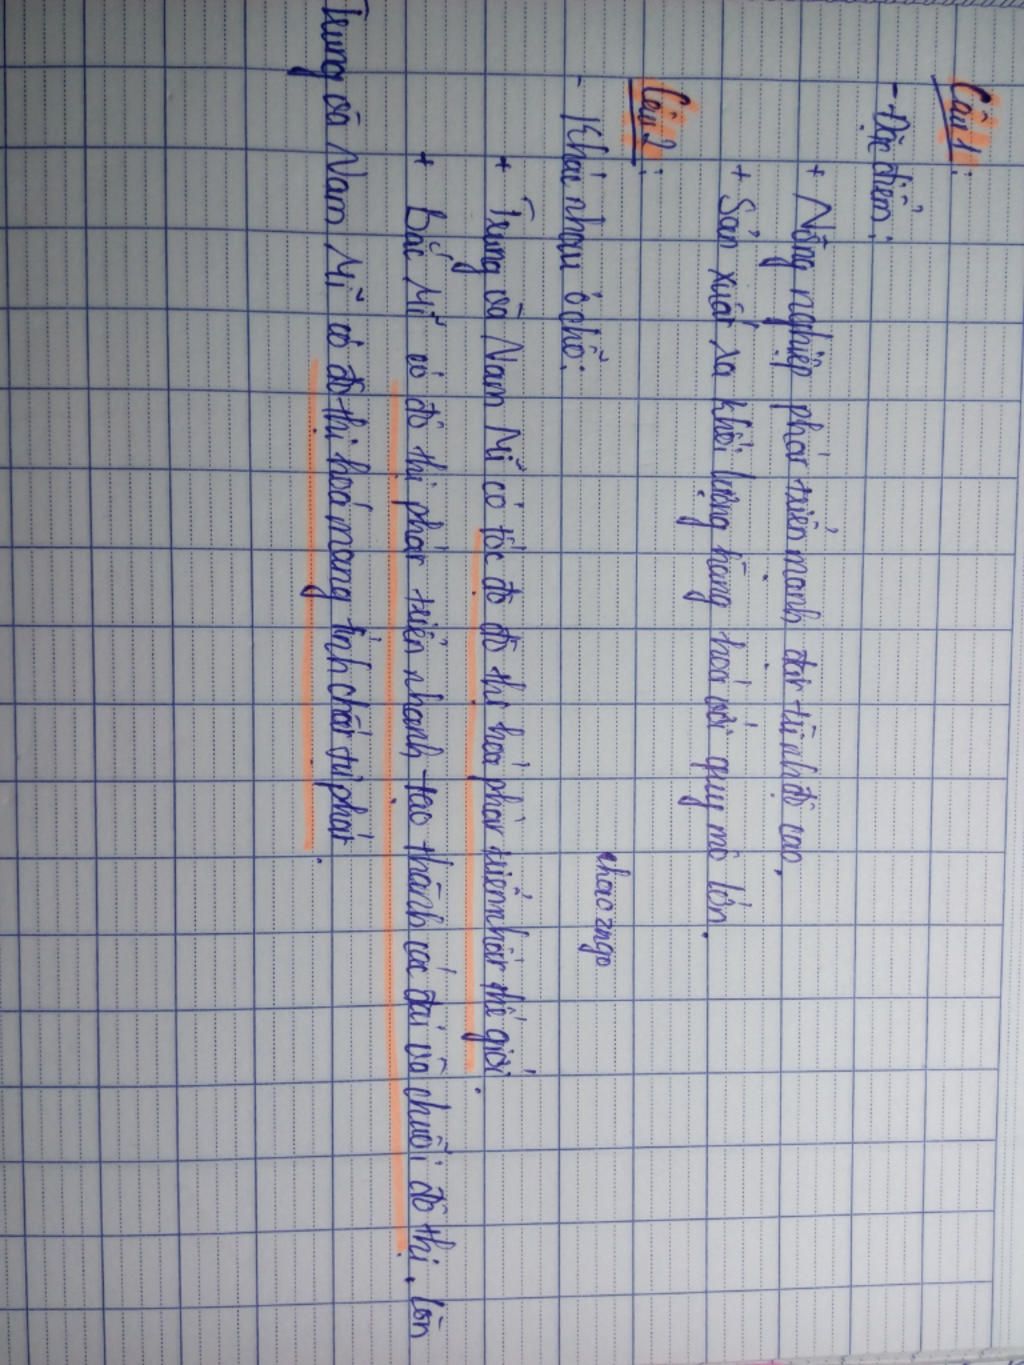 Câu 1:
- Đặc điểm:
+ Nông nghiệp phát triển mạnh, đạt trình độ cao.
+ Sản xuất ra khối lượng hàng hoá với quy mô lớn.
Câu 2:
- Khác nhau ở chỗ:
+ Trung và Nam Mĩ có tốc độ đô thị hoá phát triển nhất thế giới.
+ Bắc Mĩ có đô thị phát triển nhanh, tạo thành các dải và chuỗi đô thị. Còn
Trung và Nam Mĩ có đô thị hoá mang tính chất tự phát.